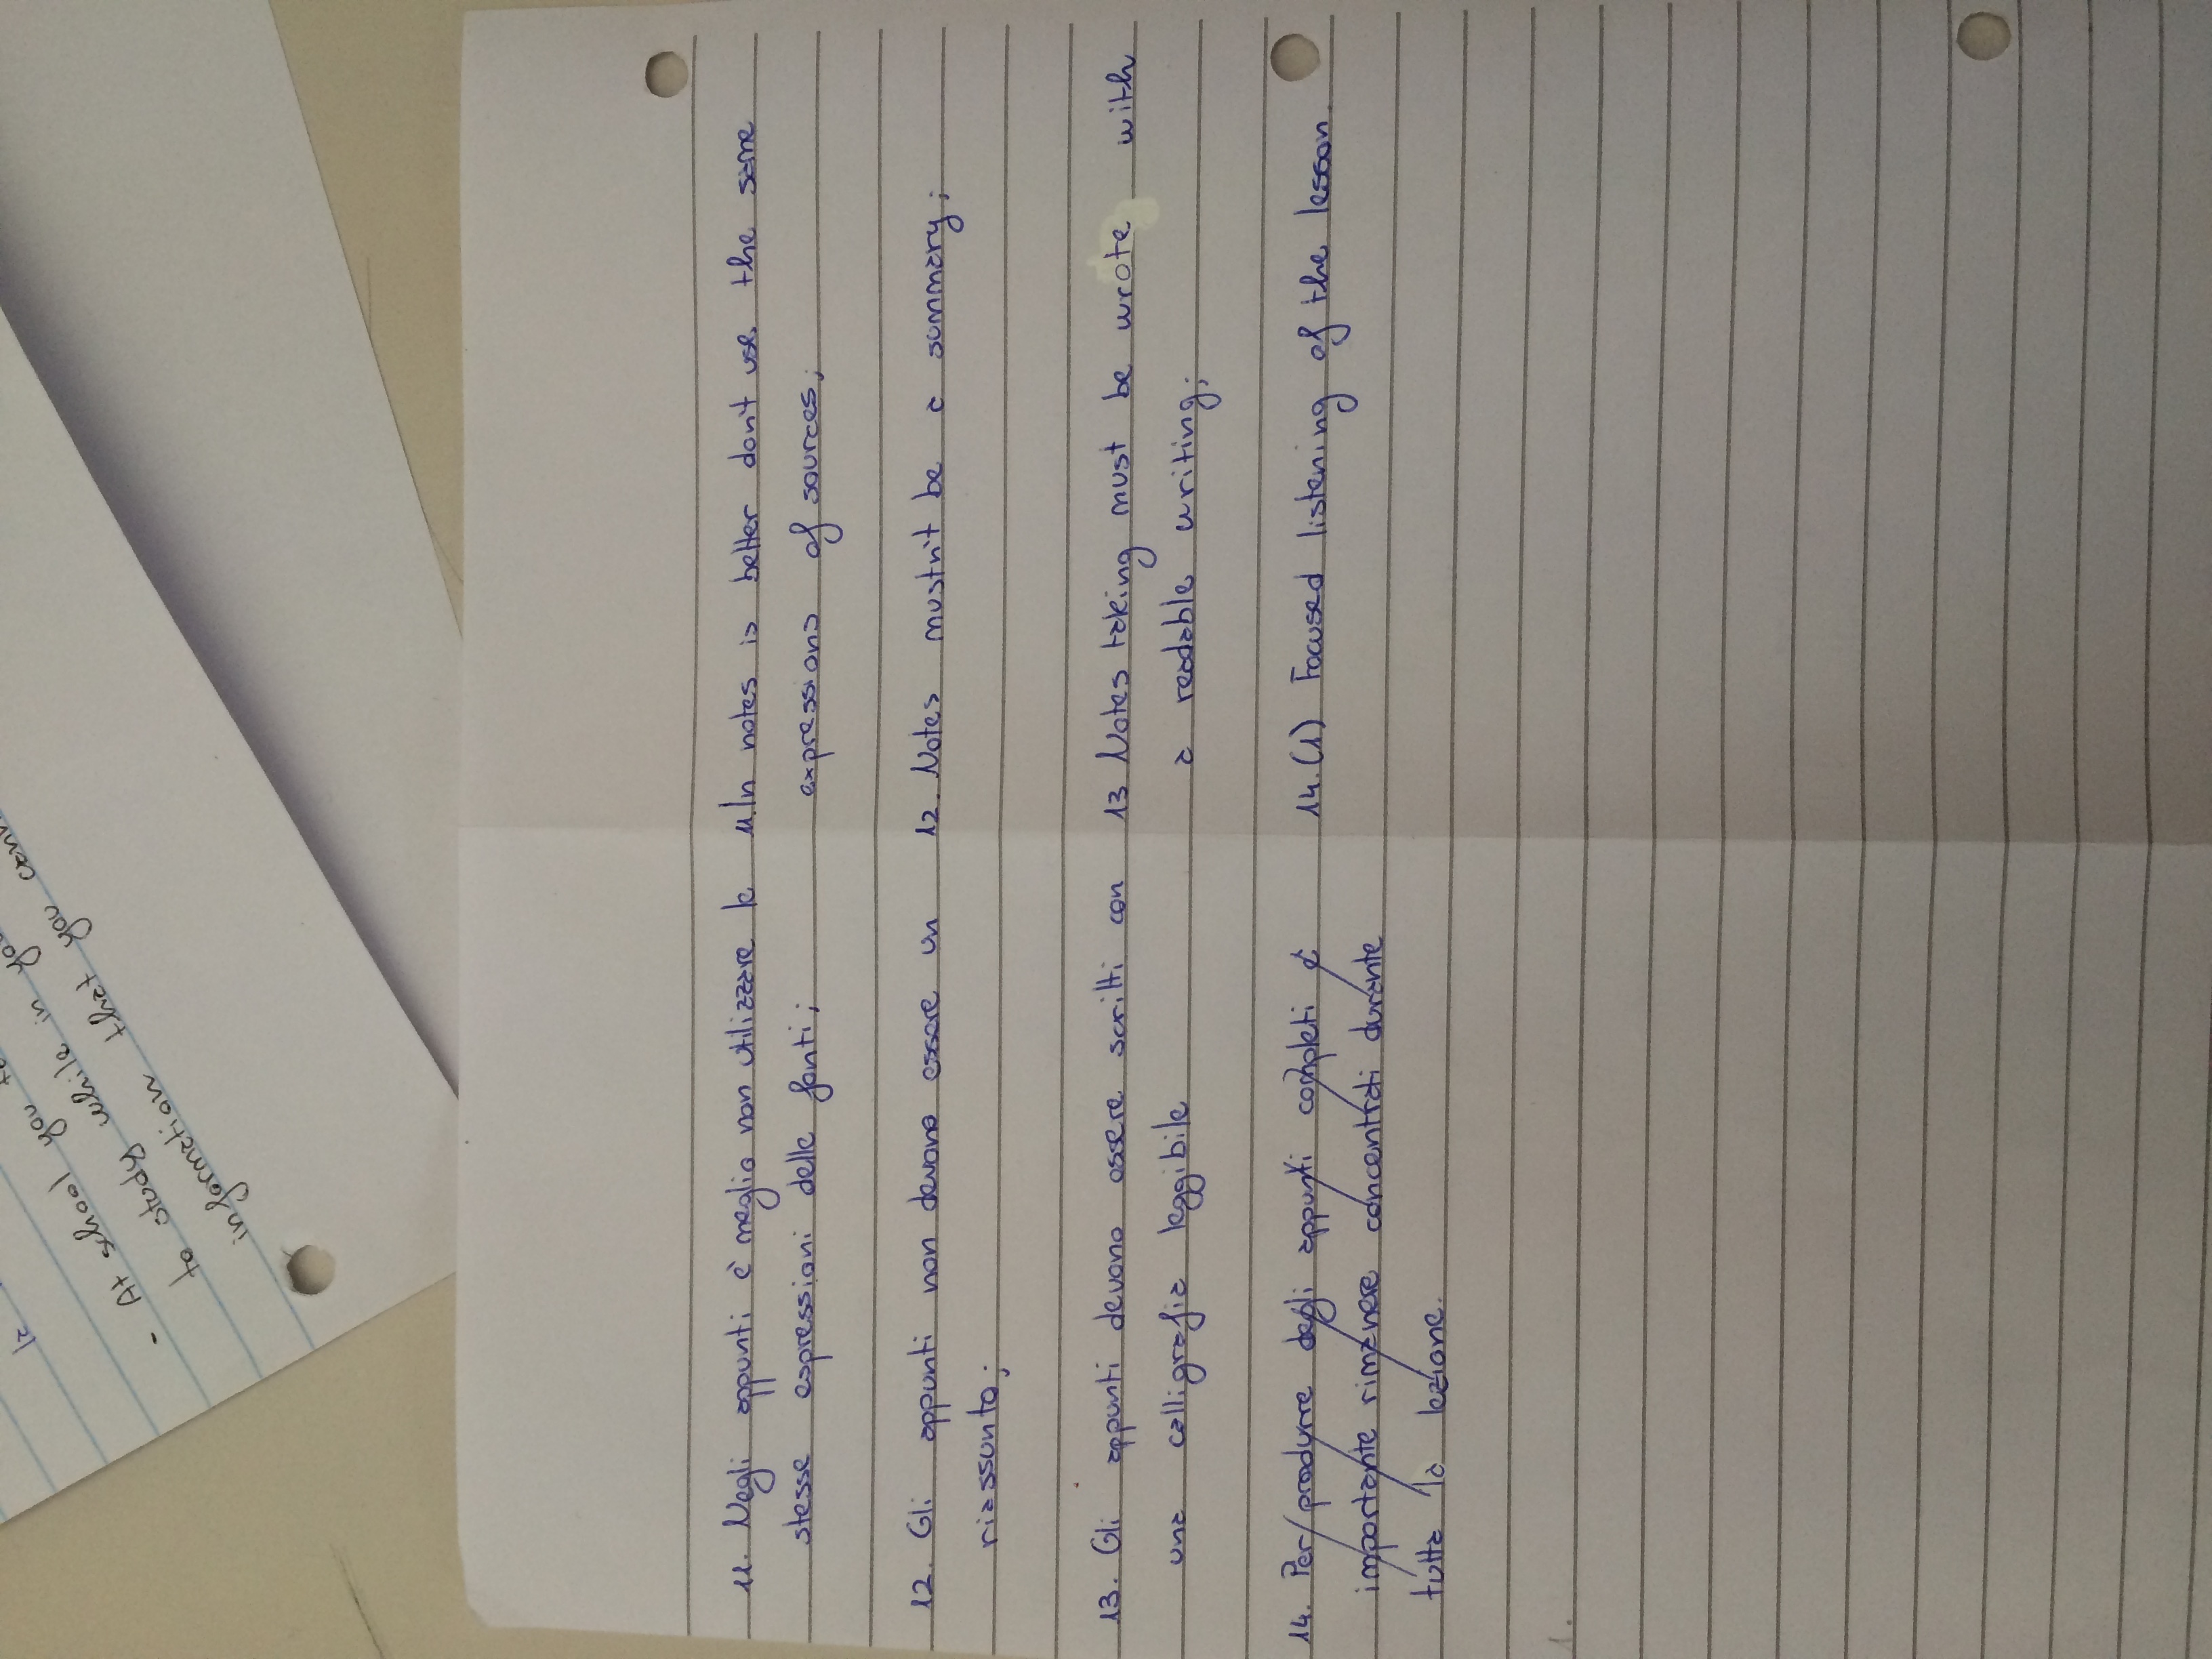 11. Negli appunti è meglio non utilizzare le
stesse espressioni delle fonti;
12. Gli appunti non devono essere un
riassunto;
13. Gli appunti devono essere scritti con
una calligrafia leggibile
14. Per produrre degli appunti completi è
importante rimanere concentrati durante
tutta la lezione.
11. In notes is better don't use the same
expressions of sources;
12. Notes mustn't be a summary;
13 Notes taking must be wrote with
a readable writing;
14. (1) Focused listening of the lesson.
- At school you
to study while in
information that you